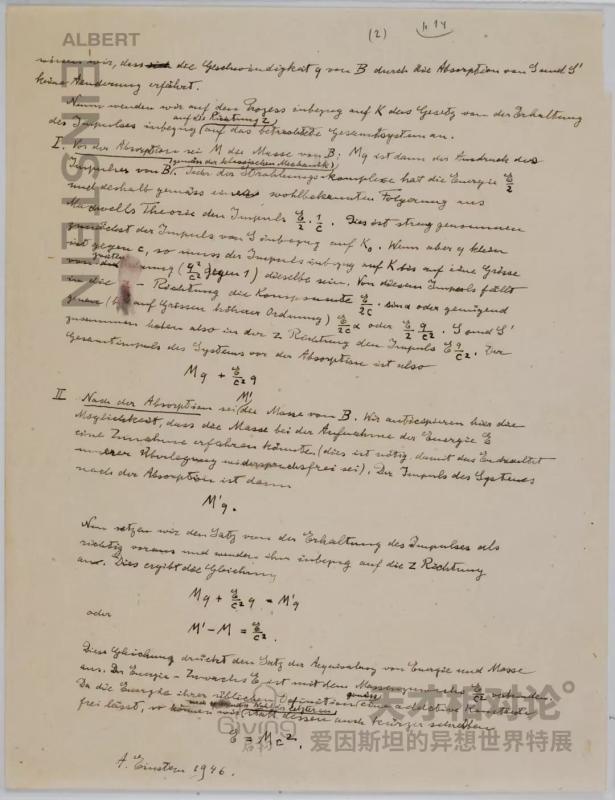 ALBERT
EINSTEIN
(2)
wissen wir, dass die Geschwindigkeit q von B durch die Absorption von S und S'
keine Aenderung erfährt.
Nun wenden wir auf den Prozess inbezug auf K das Gesetz von der Erhaltung
auf die Richtung z
des Impulses inbezug auf das betrachtete Gesamtsystem an.
I. Vor der Absorption sei M die Masse von B. Mq ist dann der Ausdruck des
(gemäss der klassischen Mechanik)
Impulses von B. Jeder der Strahlungs-Komplexe hat die Energie E/2
und deshalb gemäss wohlbekannten Folgerung aus
Maxwells Theorie den Impuls E/2 · 1/c. Dies ist streng genommen
zunächst der Impuls von S inbezug auf K₀. Wenn aber q klein
ist gegen c, so muss der Impuls inbezug auf K bis auf eine Grösse
von Ordnung (q²/c² gegen 1) dieselbe sein. Von diesem Impuls fällt
in die - Richtung die Komponente E/2c · sind oder genügend
genau (bis auf Grössen höherer Ordnung) E/2c α oder E/2 · q/c². S und S'
zusammen haben also in der z Richtung den Impuls E q/c². Der
Gesamtimpuls des Systems vor der Absorption ist also
Mq + E/c² q
M'
II Nach der Absorption sei die Masse von B. Wir anticipieren hier die
Möglichkeit, dass die Masse bei der Aufnahme der Energie E
eine Zunahme erfahren könnte (dies ist nötig damit das Endresultat
unserer Überlegung widerspruchsfrei sei). Der Impuls des Systems
nach der Absorption ist dann
M'q.
Nun setzen wir den Satz von der Erhaltung des Impulses als
richtig voraus und wenden ihn inbezug auf die z Richtung
an. Dies ergibt die Gleichung
Mq + E/c² q = M'q
oder
M' - M = E/c².
Diese Gleichung drückt den Satz der Aequivalenz von Energie und Masse
aus. Der Energie-Zuwachs E ist mit dem Massenzuwachs E/c² verbunden.
Da die Energie ihrer üblichen Definition gemäss eine additive Konstante
frei lässt, so können wir statt dessen auch kürzer schreiben
E = Mc².
A. Einstein 1946.
Giving
启约
天才相对论
爱因斯坦的异想世界特展